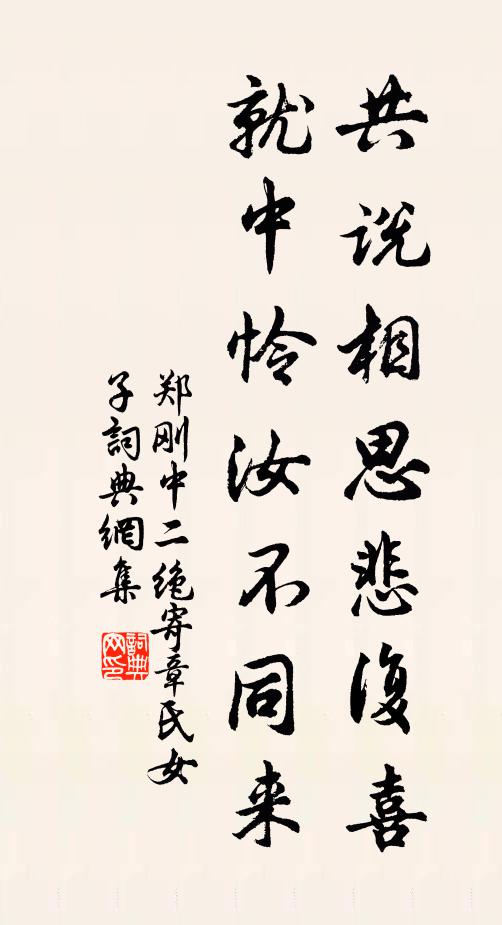 共说相思悲復喜
就中怜汝不同来
郑刚中二绝寄章氏女
子詞典網集
詞典网印